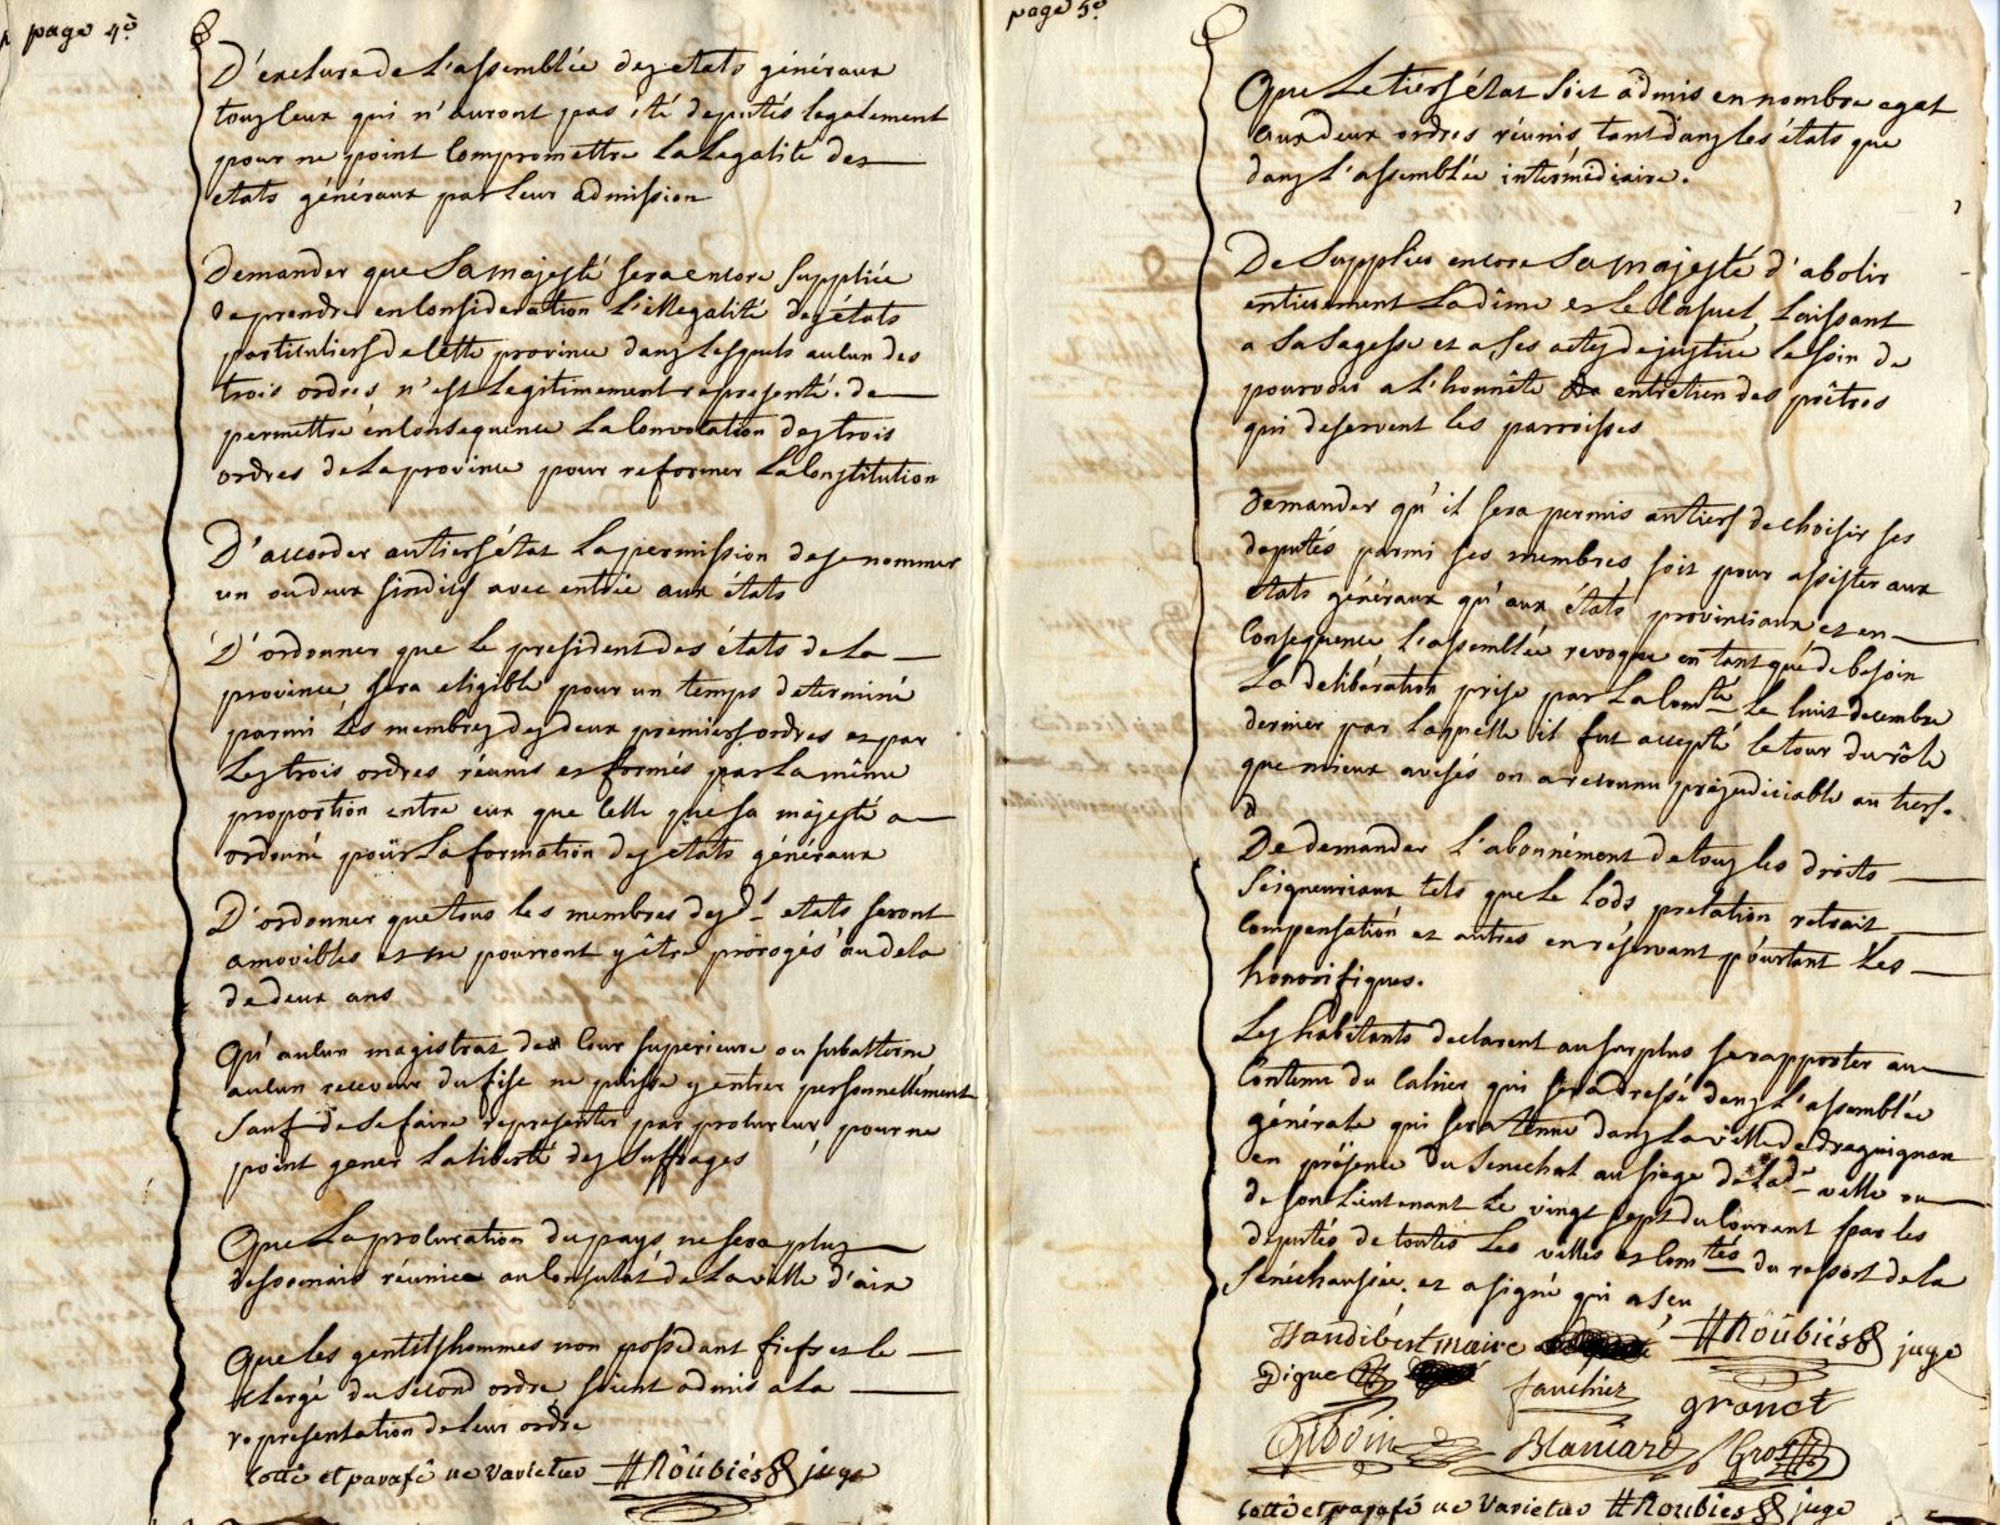 page 4e
D'exclure de l'assemblée des etats généraux
tous ceux qui n'auront pas été deputés legalement
pour ne point compromettre la legalité des
etats généraux par leur admission
Demander que Sa majesté sera encore suppliée
de prendre en consideration l'illegalité des états
particuliers de cette province dans lesquels aucun des
trois ordres n'est legitimement representé. de
permettre en consequence la convocation des trois
ordres de la province pour reformer la constitution
D'accorder au tiers état la permission de se nommer
un ou deux sindics avec entrée aux états
D'ordonner que le president des états de la
province sera eligible pour un temps determiné
parmi les membres des deux premiers ordres et par
les trois ordres réunis et formés par la même
proportion entre eux que celle que sa majesté a
ordonné pour la formation des etats généraux
D'ordonner que tous les membres des d.s etats seront
amovibles et ne pourront y être prorogés au dela
de deux ans
Qu'aucun magistrat de cour superieure ou subalterne
aucun receveur du fisc ne puisse y entrer personnellement
sauf de se faire representer par procureur, pour ne
point gener la liberté des suffrages
Que la procuration du pays ne sera plus
desormais réunie au consulat de la ville d'aix
Que les gentilshommes non possedant fiefs et le
clergé du second ordre soient admis a la
representation de leur ordre
Cotté et parafé ne varietur Roubiés juge
page 5e
Que le tiers état soit admis en nombre egal
aux deux ordres réunis, tant dans les états que
dans l'assemblée intérmédiaire.
De supplier encore Sa majesté d'abolir
entierement la dîme et le casuel, laissant
a sa sagesse et a ses actes de justice le soin de
pourvoir a l'honnête entretien des prêtres
qui deservent les parroisses
Demander qu'il sera permis au tiers de choisir ses
deputés parmi ses membres soit pour assister aux
etats généraux qu'aux états provinciaux et en
consequence l'assemblée revoque en tant que de besoin
la deliberation prise par la com.té le huit decembre
dernier par laquelle il fut accepté le tour du rôle
que mieux avisés on a reconnu préjudiciable au tiers.
D
De demander l'abonnément de tous les droits
seigneuriaux tels que le lods, prelation retrait
compensation et autres en réservant pourtant les
honorifiques.
Les habitants declarent au surplus se rapporter au
contenu du cahier qui sera dressé dans l'assemblée
générale qui sera tenue dans la ville de draguignan
en présence du Senechal au siege de la d.e ville ou
de son lieutenant le vingt sept du courant par les
deputés de toutes les villes et com.tés du ressort de la
Senéchaussée. et a signé qui a sçu
Haudibert maire Roubiés juge
Digue fauchier granet
Giboin Blancard Gros
Cotté et parafé ne varietur Roubies juge